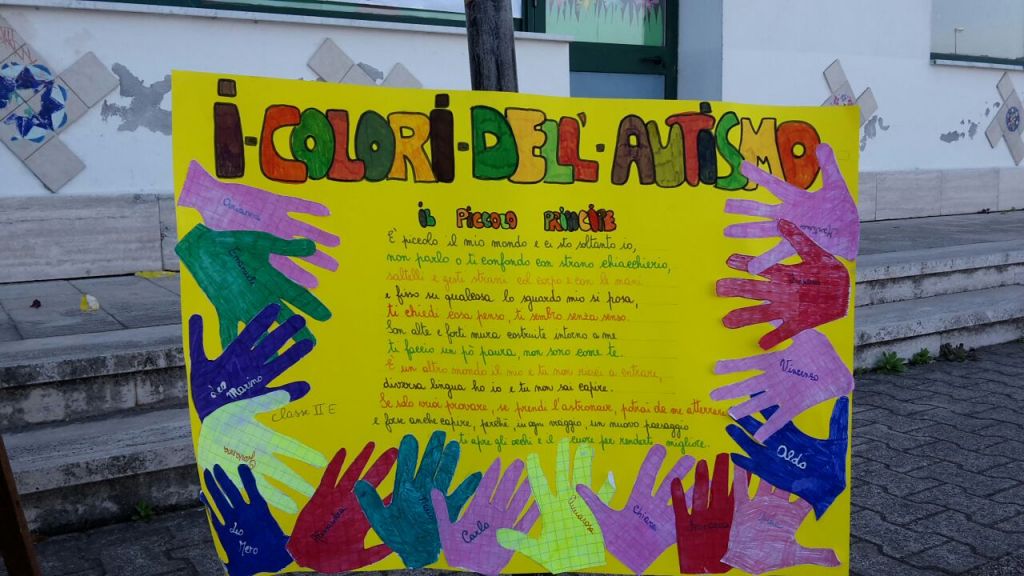 I COLORI DELL'AUTISMO
IL PICCOLO PRINCIPE
E' piccolo il mio mondo e ci sto soltanto io,
non parlo o ti confondo con strano chiacchierio,
saltelli e gesti strani col corpo e con le mani
e fisso su qualcosa lo sguardo mio si posa,
ti chiedi cosa penso, ti sembro senza senso.
Son alte e forti mura costruite intorno a me
ti faccio un pò paura, non sono come te.
E' un altro mondo il mio e tu non riesci a entrare,
diversa lingua ho io e tu non sai capire.
Se solo vuoi provare, se prendi l'astronave, potrai da me atterrare
e forse anche capire, perchè in ogni viaggio, un nuovo paesaggio
ti apre gli occhi e il cuore per renderti migliore.
classe II E
Arianna
Emanuele
Marino
Vincenzo
Aldo
Leo
Mero
Carlo
Chiara